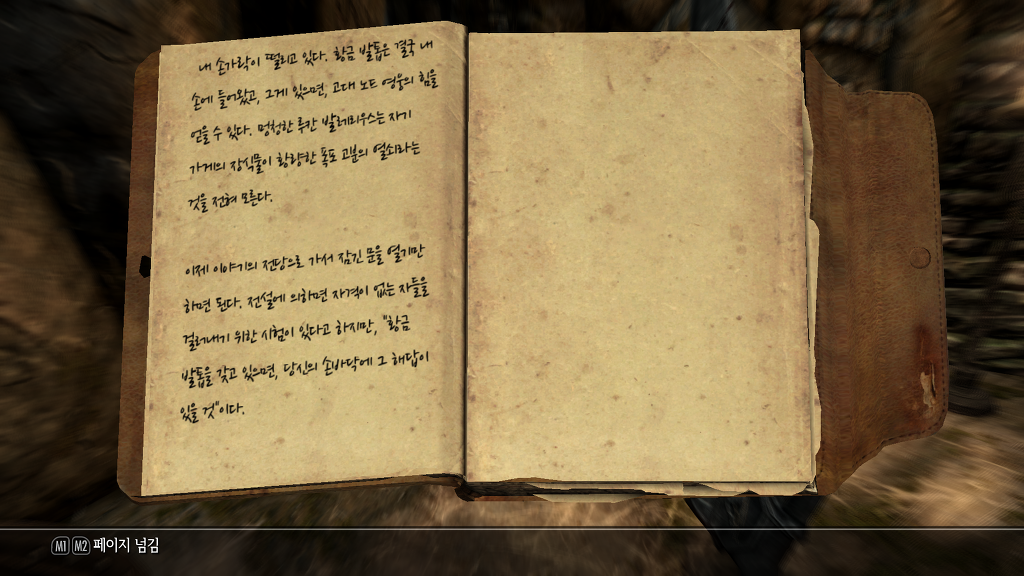 내 손가락이 떨리고 있다. 황금 발톱은 결국 내
손에 들어왔고, 그게 있으면, 고대 노드 영웅의 힘을
얻을 수 있다. 멍청한 루칸 발레리우스는 자기
가게의 장식물이 황량한 폭포 고분의 열쇠라는
것을 전혀 모른다.
이제 이야기의 전당으로 가서 잠긴 문을 열기만
하면 된다. 전설에 의하면 자격이 없는 자들을
걸러내기 위한 시험이 있다고 하지만, "황금
발톱을 갖고 있으면, 당신의 손바닥에 그 해답이
있을 것"이다.
M1 M2 페이지 넘김